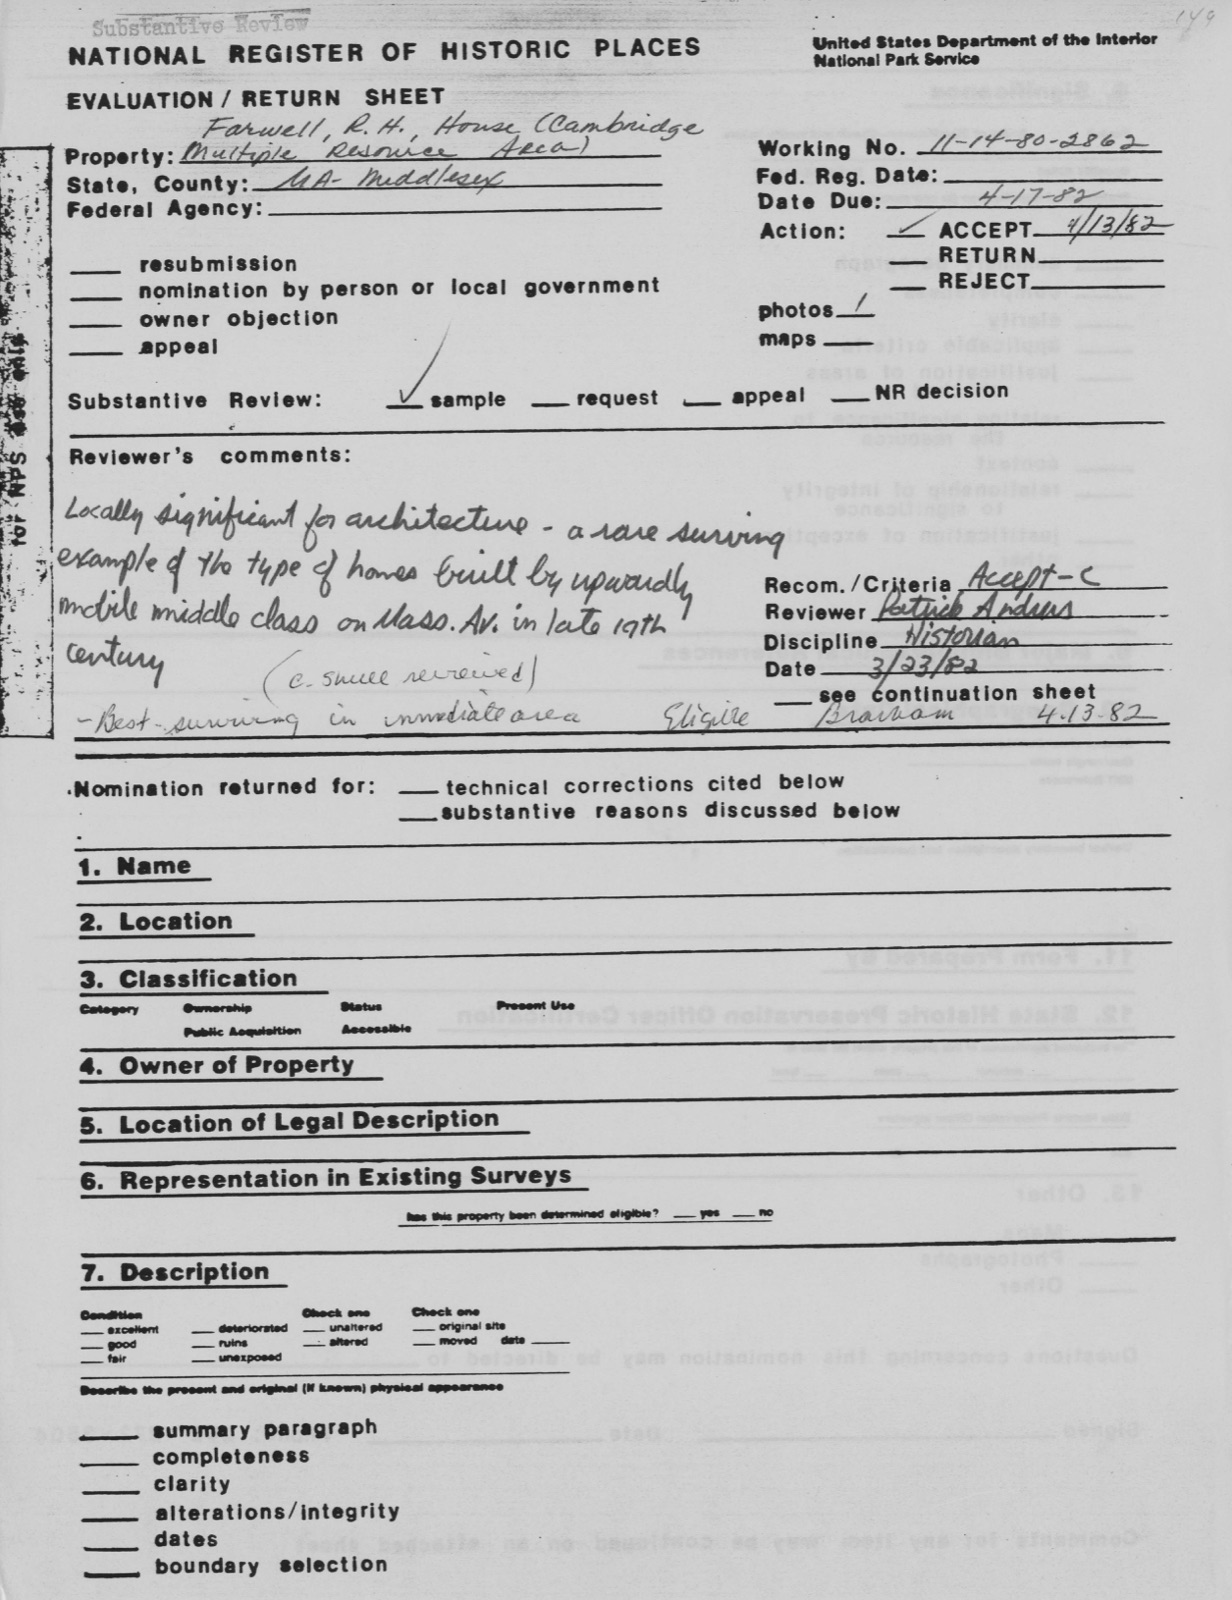 Substantive Review
NATIONAL REGISTER OF HISTORIC PLACES
United States Department of the Interior
National Park Service
EVALUATION / RETURN SHEET
Farwell, R. H., House (Cambridge
Property: Multiple Resource Area)
State, County: MA- Middlesex
Federal Agency:
Working No. 11-14-80-2862
Fed. Reg. Date:
Date Due: 4-17-82
Action: ✓ ACCEPT 4/13/82
RETURN
REJECT
resubmission
nomination by person or local government
owner objection
appeal
photos 1
maps
Substantive Review: ✓ sample request appeal NR decision
for NPS use only
Reviewer's comments:
Locally significant for architecture - a rare surving
example of the type of homes built by upwardly
mobile middle class on Mass. Av. in late 19th
century
(C. Shull reviewed)
- Best surviving in immediate area Eligible 4.13.82
Recom./Criteria Accept-C
Reviewer Patrick Andrus
Discipline Historian
Date 3/23/82
see continuation sheet
Nomination returned for: technical corrections cited below
substantive reasons discussed below
1. Name
2. Location
3. Classification
Category Ownership Status Present Use
Public Acquisition Accessible
4. Owner of Property
5. Location of Legal Description
6. Representation in Existing Surveys
has this property been determined eligible? yes no
7. Description
Condition Check one Check one
excellent deteriorated unaltered original site
good ruins altered moved date
fair unexposed
Describe the present and original (if known) physical appearance
summary paragraph
completeness
clarity
alterations/integrity
dates
boundary selection